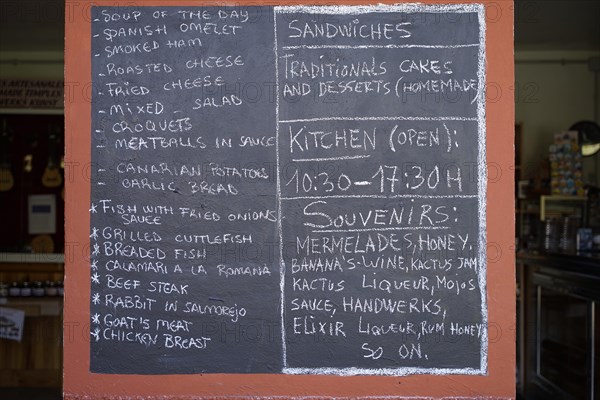 - SOUP OF THE DAY
- SPANISH OMELET
- SMOKED HAM
- ROASTED CHEESE
- FRIED CHEESE
- MIXED SALAD
- CROQUETS
- MEATBALLS IN SAUCE
- CANARIAN POTATOES
- GARLIC BREAD
* FISH WITH FRIED ONIONS
SAUCE
* GRILLED CUTTLEFISH
* BREADED FISH
* CALAMARI A LA ROMANA
* BEEF STEAK
* RABBIT IN SALMOREJO
* GOAT'S MEAT
* CHICKEN BREAST
SANDWICHES
TRADITIONALS CAKES
AND DESSERTS (HOMEMADE)
KITCHEN (OPEN):
10:30 - 17:30 H
SOUVENIRS:
MERMELADES, HONEY,
BANANA'S-WINE, KACTUS JAM
KACTUS LIQUEUR, MOJOS
SAUCE, HANDWERKS,
ELIXIR LIQUEUR, RUM HONEY
SO ON.